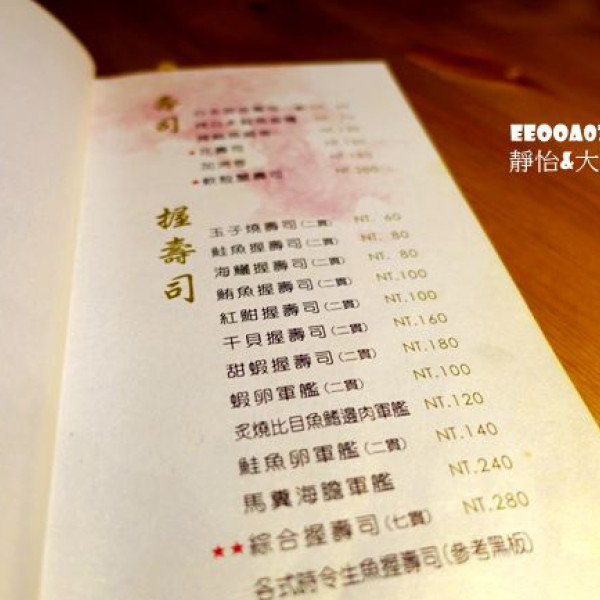 壽司
花壽司
加州卷
★軟殼蟹壽司
握壽司
玉子燒壽司(二貫) NT. 60
鮭魚握壽司(二貫) NT. 80
海鱺握壽司(二貫) NT. 80
鮪魚握壽司(二貫) NT.100
紅魽握壽司(二貫) NT.100
干貝握壽司(二貫) NT.160
甜蝦握壽司(二貫) NT.180
蝦卵軍艦(二貫) NT.100
炙燒比目魚鰭邊肉軍艦 NT.120
鮭魚卵軍艦(二貫) NT.140
馬糞海膽軍艦 NT.240
★★綜合握壽司(七貫) NT.280
各式時令生魚握壽司(參考黑板)
EEOOAO7
靜怡&大